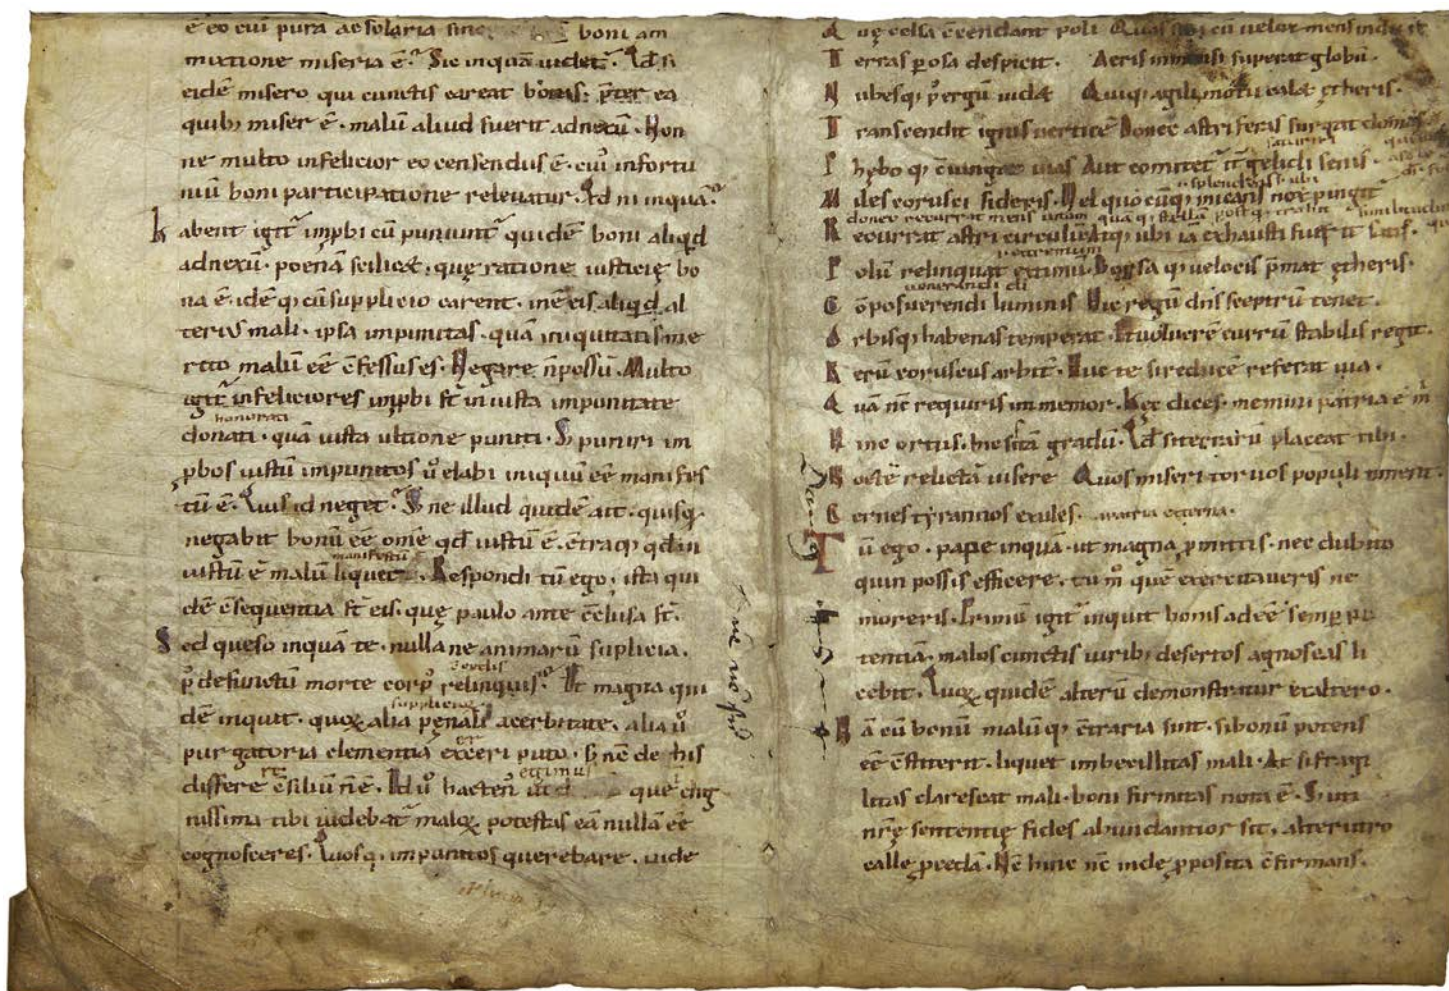 ē eo cui' pura ac solaria sine boni am
mixtione miseria ē. Sic inquā uidet. Qd si
eidē misero qui cunctis careat bonis. p̄ter ea
quib; miser ē. malū aliud fuerit adnexū. Non
ne multo infelicior eo censendus ē. cui' infortu
niū boni participatione releuatur. Qd ni inquā.
habent igit̄ imp̄bi cū puniunt̄ quidē boni aliqd
adnexū. poenā scilicet. quę ratione iusticię bo
na ē. idē q; cū supplicio carent. inē eis aliqd al
terius mali. ipsa impunitas. quā iniquitatis me
rito malū eē c̄fessus es. Negare n̄ possū. Multo
igit̄ infeliciores imp̄bi st̄ iniusta impunitate
honorati
donati. quā iusta ultione puniti. S; puniri im
p̄bos iustū impunitos u̾ elabi iniquū eē manifes
tū ē. Quis id neget. S; ne illud quidē ait. quisq̄
negabit bonū eē om̄e qd iustū ē. c̄traq; qd in
manifestū ē
iustū ē malū liquet. Respondi tū ego. ista qui
dē c̄sequentia st̄ eis. quę paulo ante c̄clusa st̄.
Sed queso inquā te. nulla ne animarū suplicia.
p' defunctū morte corp' relinquis. Et magna qui
supplicioꝝ
dē inquit. quoꝝ alia penali acerbitate. alia u̾
purgatoria clementia exceri puto. s; nc̄ de his
differe c̄siliū n̄ ē. Id u̾ hacten' egimus ut quę indig
nissima tibi uidebat̄ maloꝝ potestas eā nullā eē
cognosceres. Quosq; impunitos querebare. uide
Quę celsa c̄scendant poli Quas sibi cū uelox mens induit
Terras p̄osa despicit. Aeris inmensi superat globū.
Nubesq; p'tergū uidet Quiq; agili motu calet ętheris.
Transcendit ignis uerticē Donec astriferas surgat domos
Phębo q; c̄iungat uias Aut comitet̄ it̄ gelidi senis.
Miles corusci sideris. Vel quocūq; micans nox pingit̄
donec recurrat mens
Recurrat astri circulū Atq; ubi iā exhausti fuerit satis.
extremum
Polū relinquat extimū. Dorsa q; uelocis p̄mat ętheris.
uenerandi di
Cōpos uerendi luminis Hic regū dn̄s sceptrū tenet.
Orbisq; habenas temperat. Et uolucrē currū stabilis regit.
Rerū coruscus arbit̄. Huc te si reducē referat uia.
Quā nc̄ requiris immemor. Hęc dices. memini patria ē m̄
Hinc ortus. hic sistā gradū. Qd si terrarū placeat tibi.
Noctē relictā uisere Quos miseri toruos populi timent.
Cernes tyrannos exules.
Tū ego. pape inquā. ut magna p̄mittis. nec dubito
quin possis efficere. tu m̊ quē excitaueris ne
moreris. Primū igit̄ inquit bonis adeē semp̄ po
tentiā. malos cunctis uirib; desertos agnoscas li
cebit. Quoꝝ quidē alterū demonstratur ex altero.
Nā cū bonū malū q; c̄traria sint. si bonū potens
eē c̄stiterit. liquet imbecillitas mali. At si fragi
litas clarescat mali. boni firmitas nota ē. S; uti
nr̄ę sententię fides abundantior sit. alterutro
calle p̄cedā. Nc̄ hinc nc̄ inde p̄posita c̄firmans.